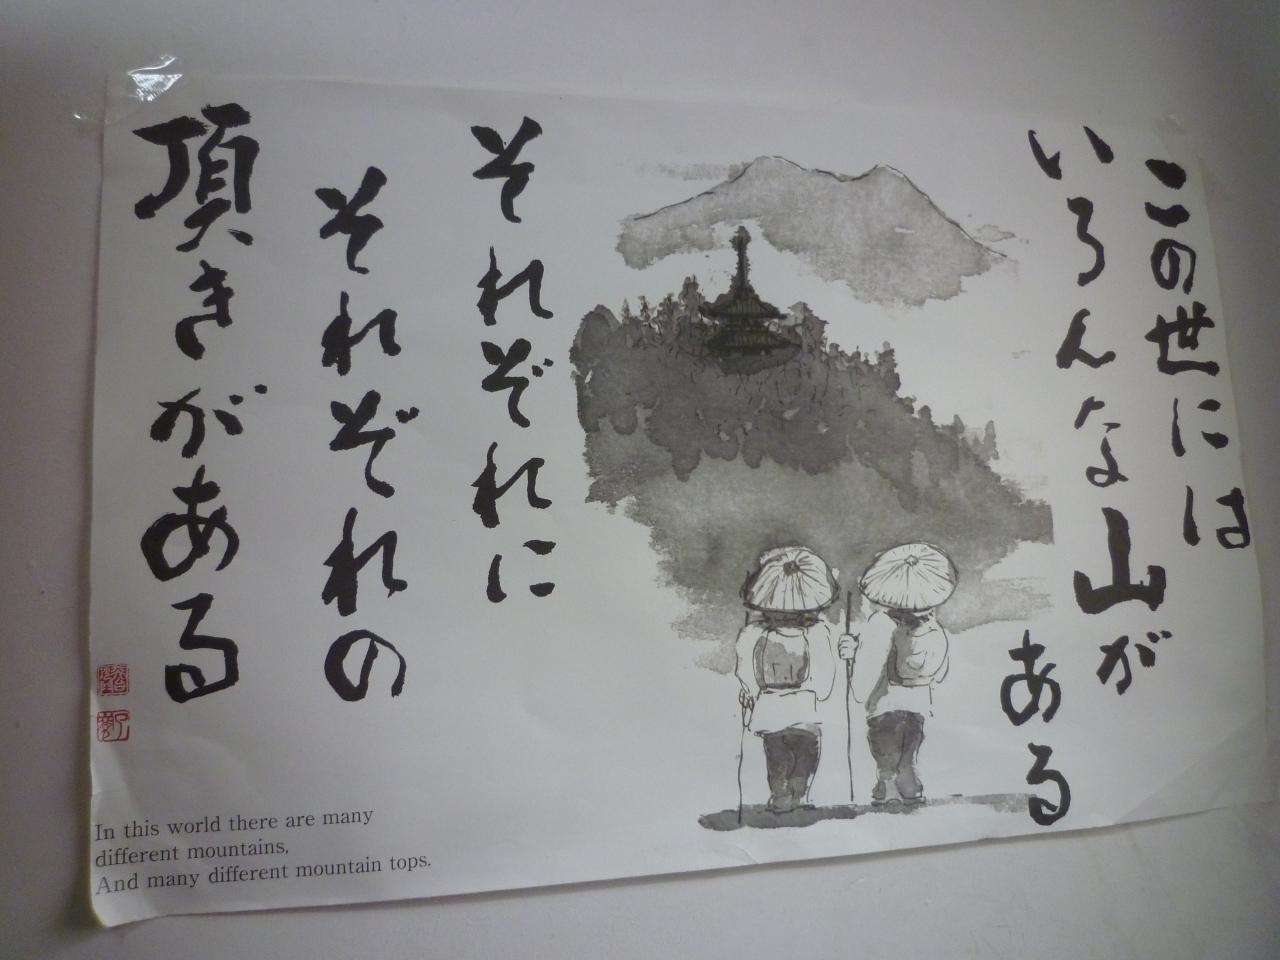 この世には
いろんな山が
ある
それぞれに
それぞれの
頂きがある
In this world there are many
different mountains,
And many different mountain tops.